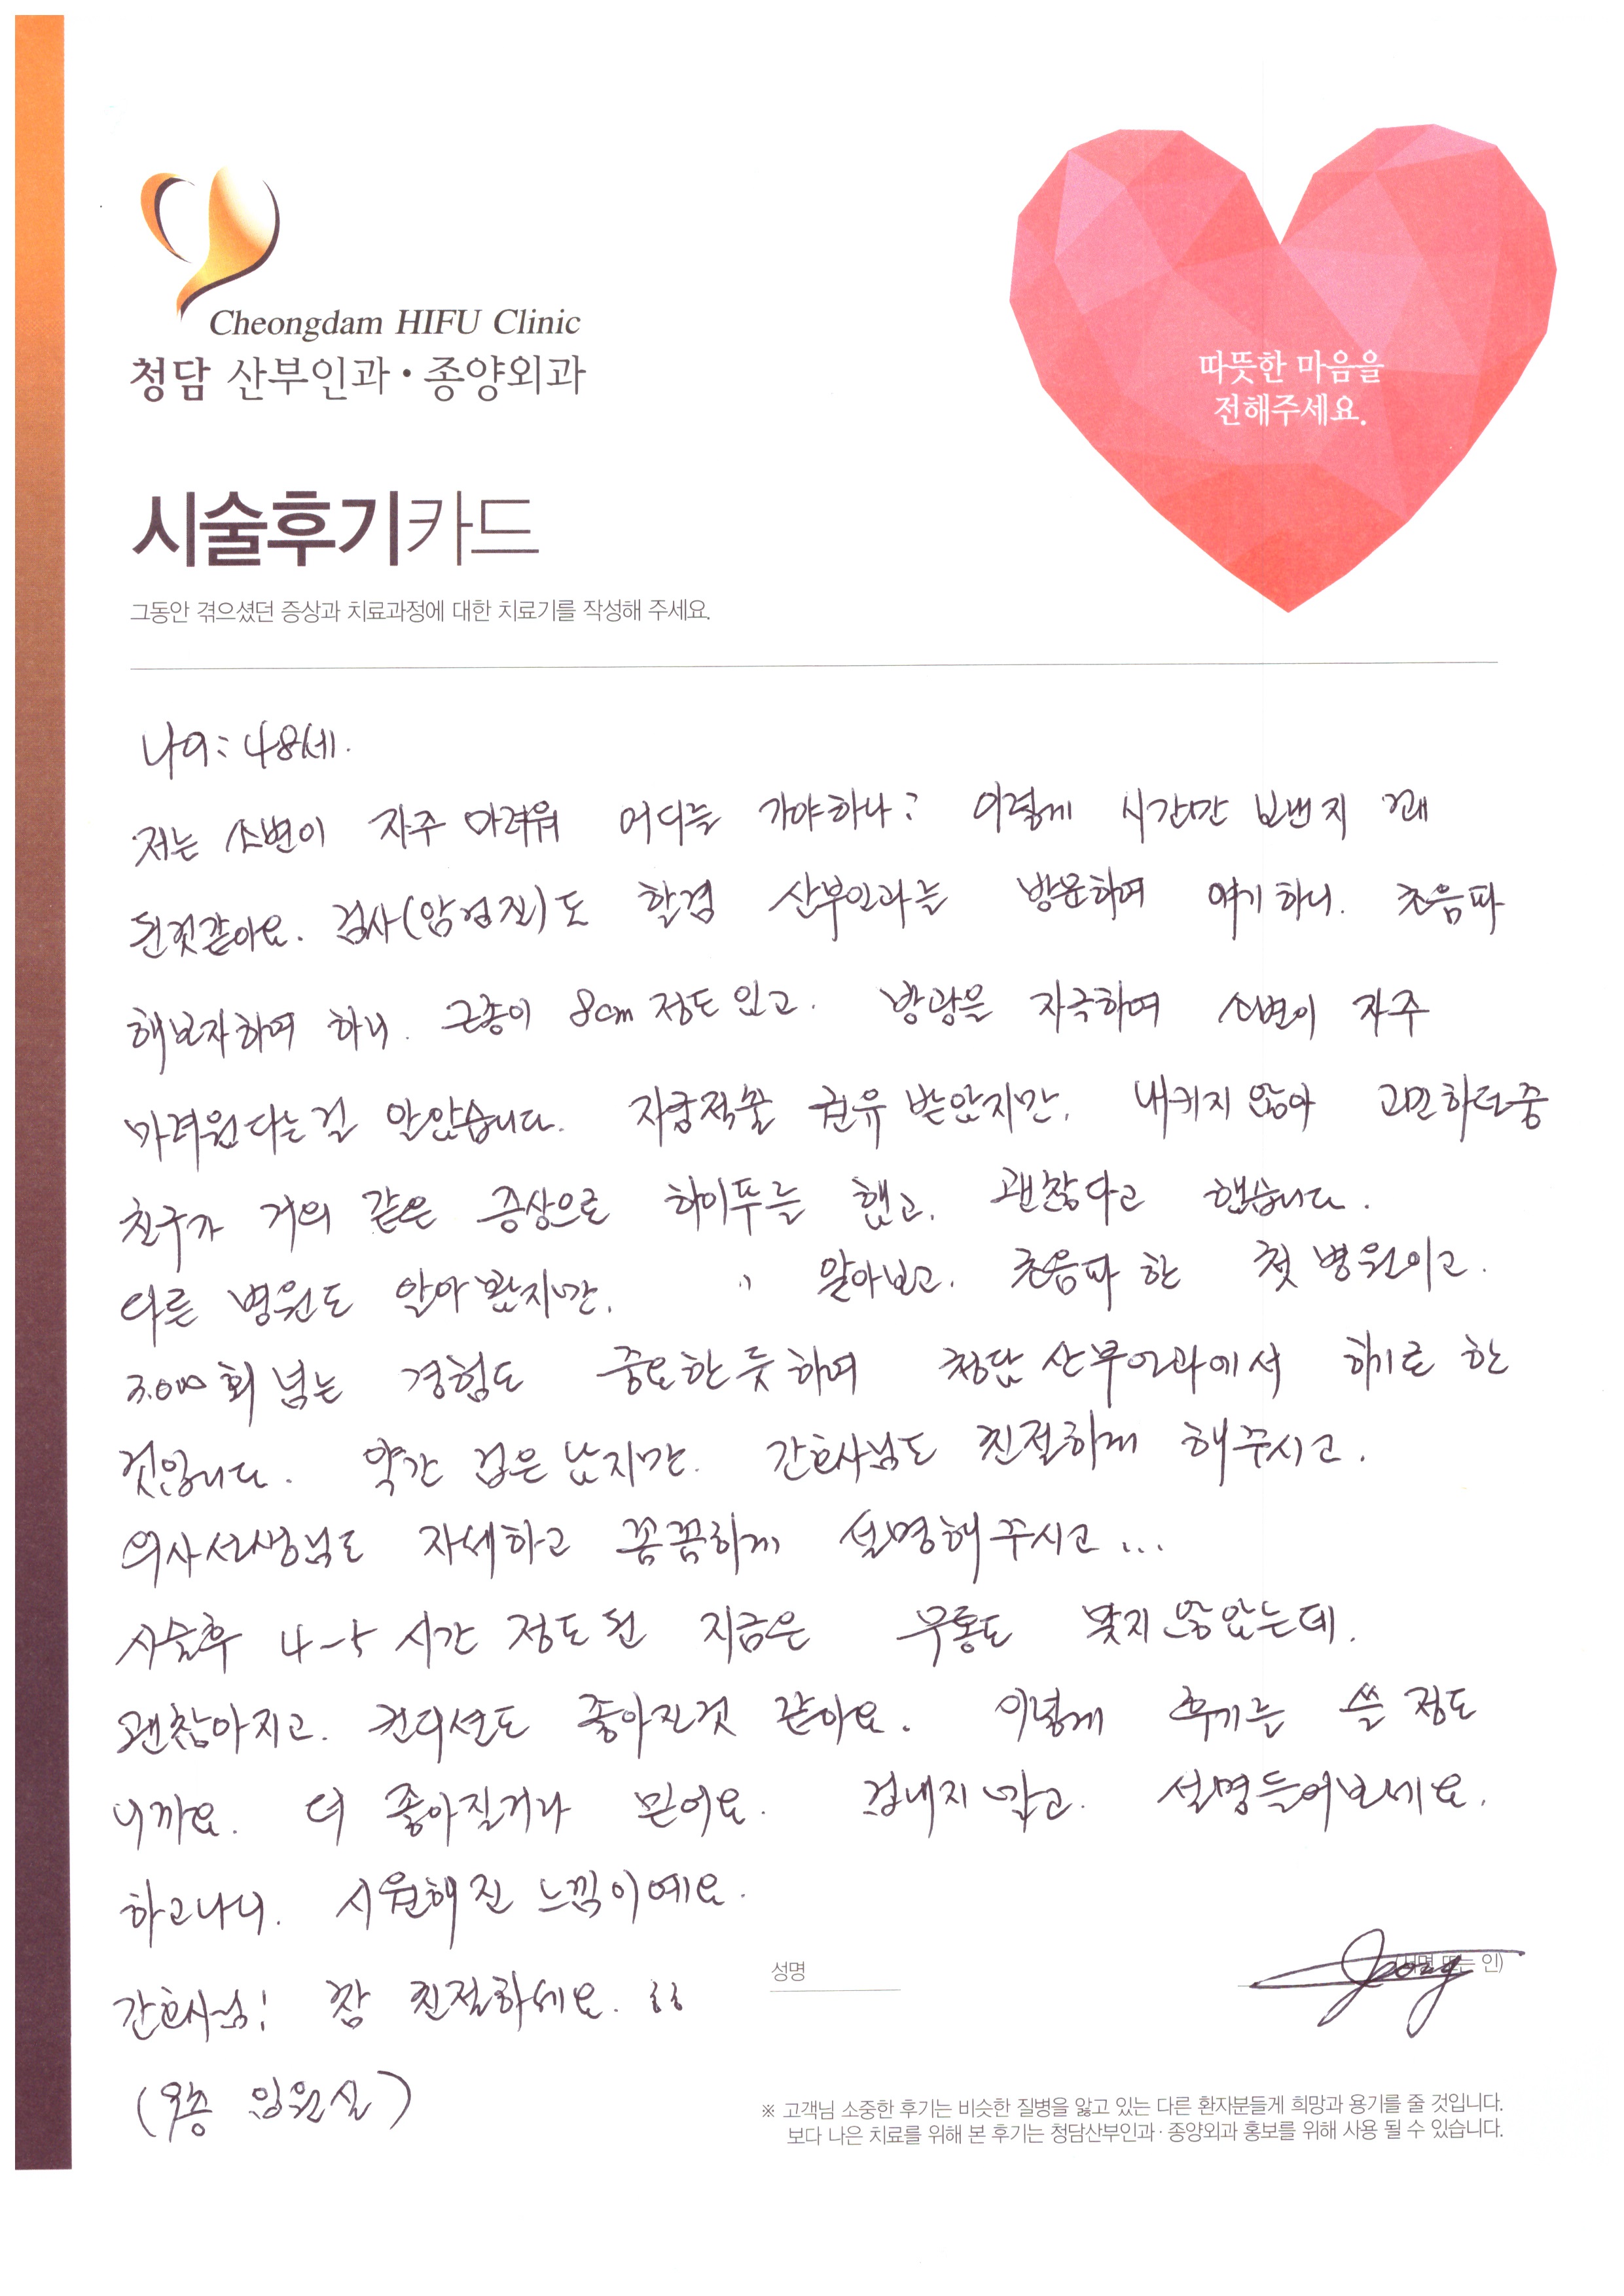 Cheongdam HIFU Clinic
청담 산부인과·종양외과
따뜻한 마음을
전해주세요.
시술후기카드
그동안 겪으셨던 증상과 치료과정에 대한 치료기를 작성해 주세요.
나이: 48세.
저는 소변이 자주 마려워 어디를 가야하나? 이렇게 시간만 보낸지 꽤
된것같아요. 검사(암검진)도 할겸 산부인과를 방문하여 얘기하니. 초음파
해보자하여 하니. 근종이 8cm 정도 있고. 방광을 자극하여 소변이 자주
마려웠다는걸 알았습니다. 자궁적출 권유 받았지만, 내키지 않아 고민하던중
친구가 거의 같은 증상으로 하이푸를 했고, 괜찮다고 했습니다.
다른 병원도 알아봤지만, 〃 알아보고, 초음파 한 첫 병원이고.
3,000회 넘는 경험도 중요한듯하여 청담 산부인과에서 하기로 한
것입니다. 약간 겁은 났지만. 간호사님도 친절하게 해주시고.
의사선생님도 자세하고 꼼꼼하게 설명해주시고...
시술후 4~5시간 정도 된 지금은 무통도 맞지 않았는데.
괜찮아지고. 컨디션도 좋아진것 같아요. 이렇게 후기를 쓸 정도
니까요. 더 좋아질거라 믿어요. 겁내지 말고. 설명들어보세요.
하고나니. 시원해진 느낌이예요.
성명 (서명 또는 인)
Jeong
간호사님! 참 친절하세요.
(9층 입원실)
※ 고객님 소중한 후기는 비슷한 질병을 앓고 있는 다른 환자분들게 희망과 용기를 줄 것입니다.
보다 나은 치료를 위해 본 후기는 청담산부인과·종양외과 홍보를 위해 사용 될 수 있습니다.